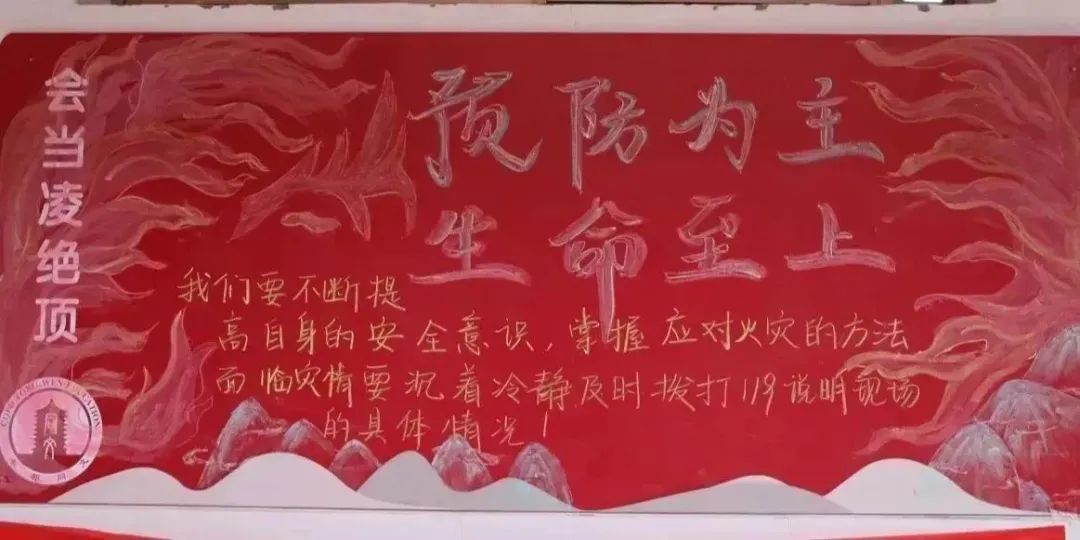 会当凌绝顶
预防为主
生命至上
我们要不断提
高自身的安全意识,掌握应对火灾的方法
面临灾情要沉着冷静及时拨打119说明现场
的具体情况!